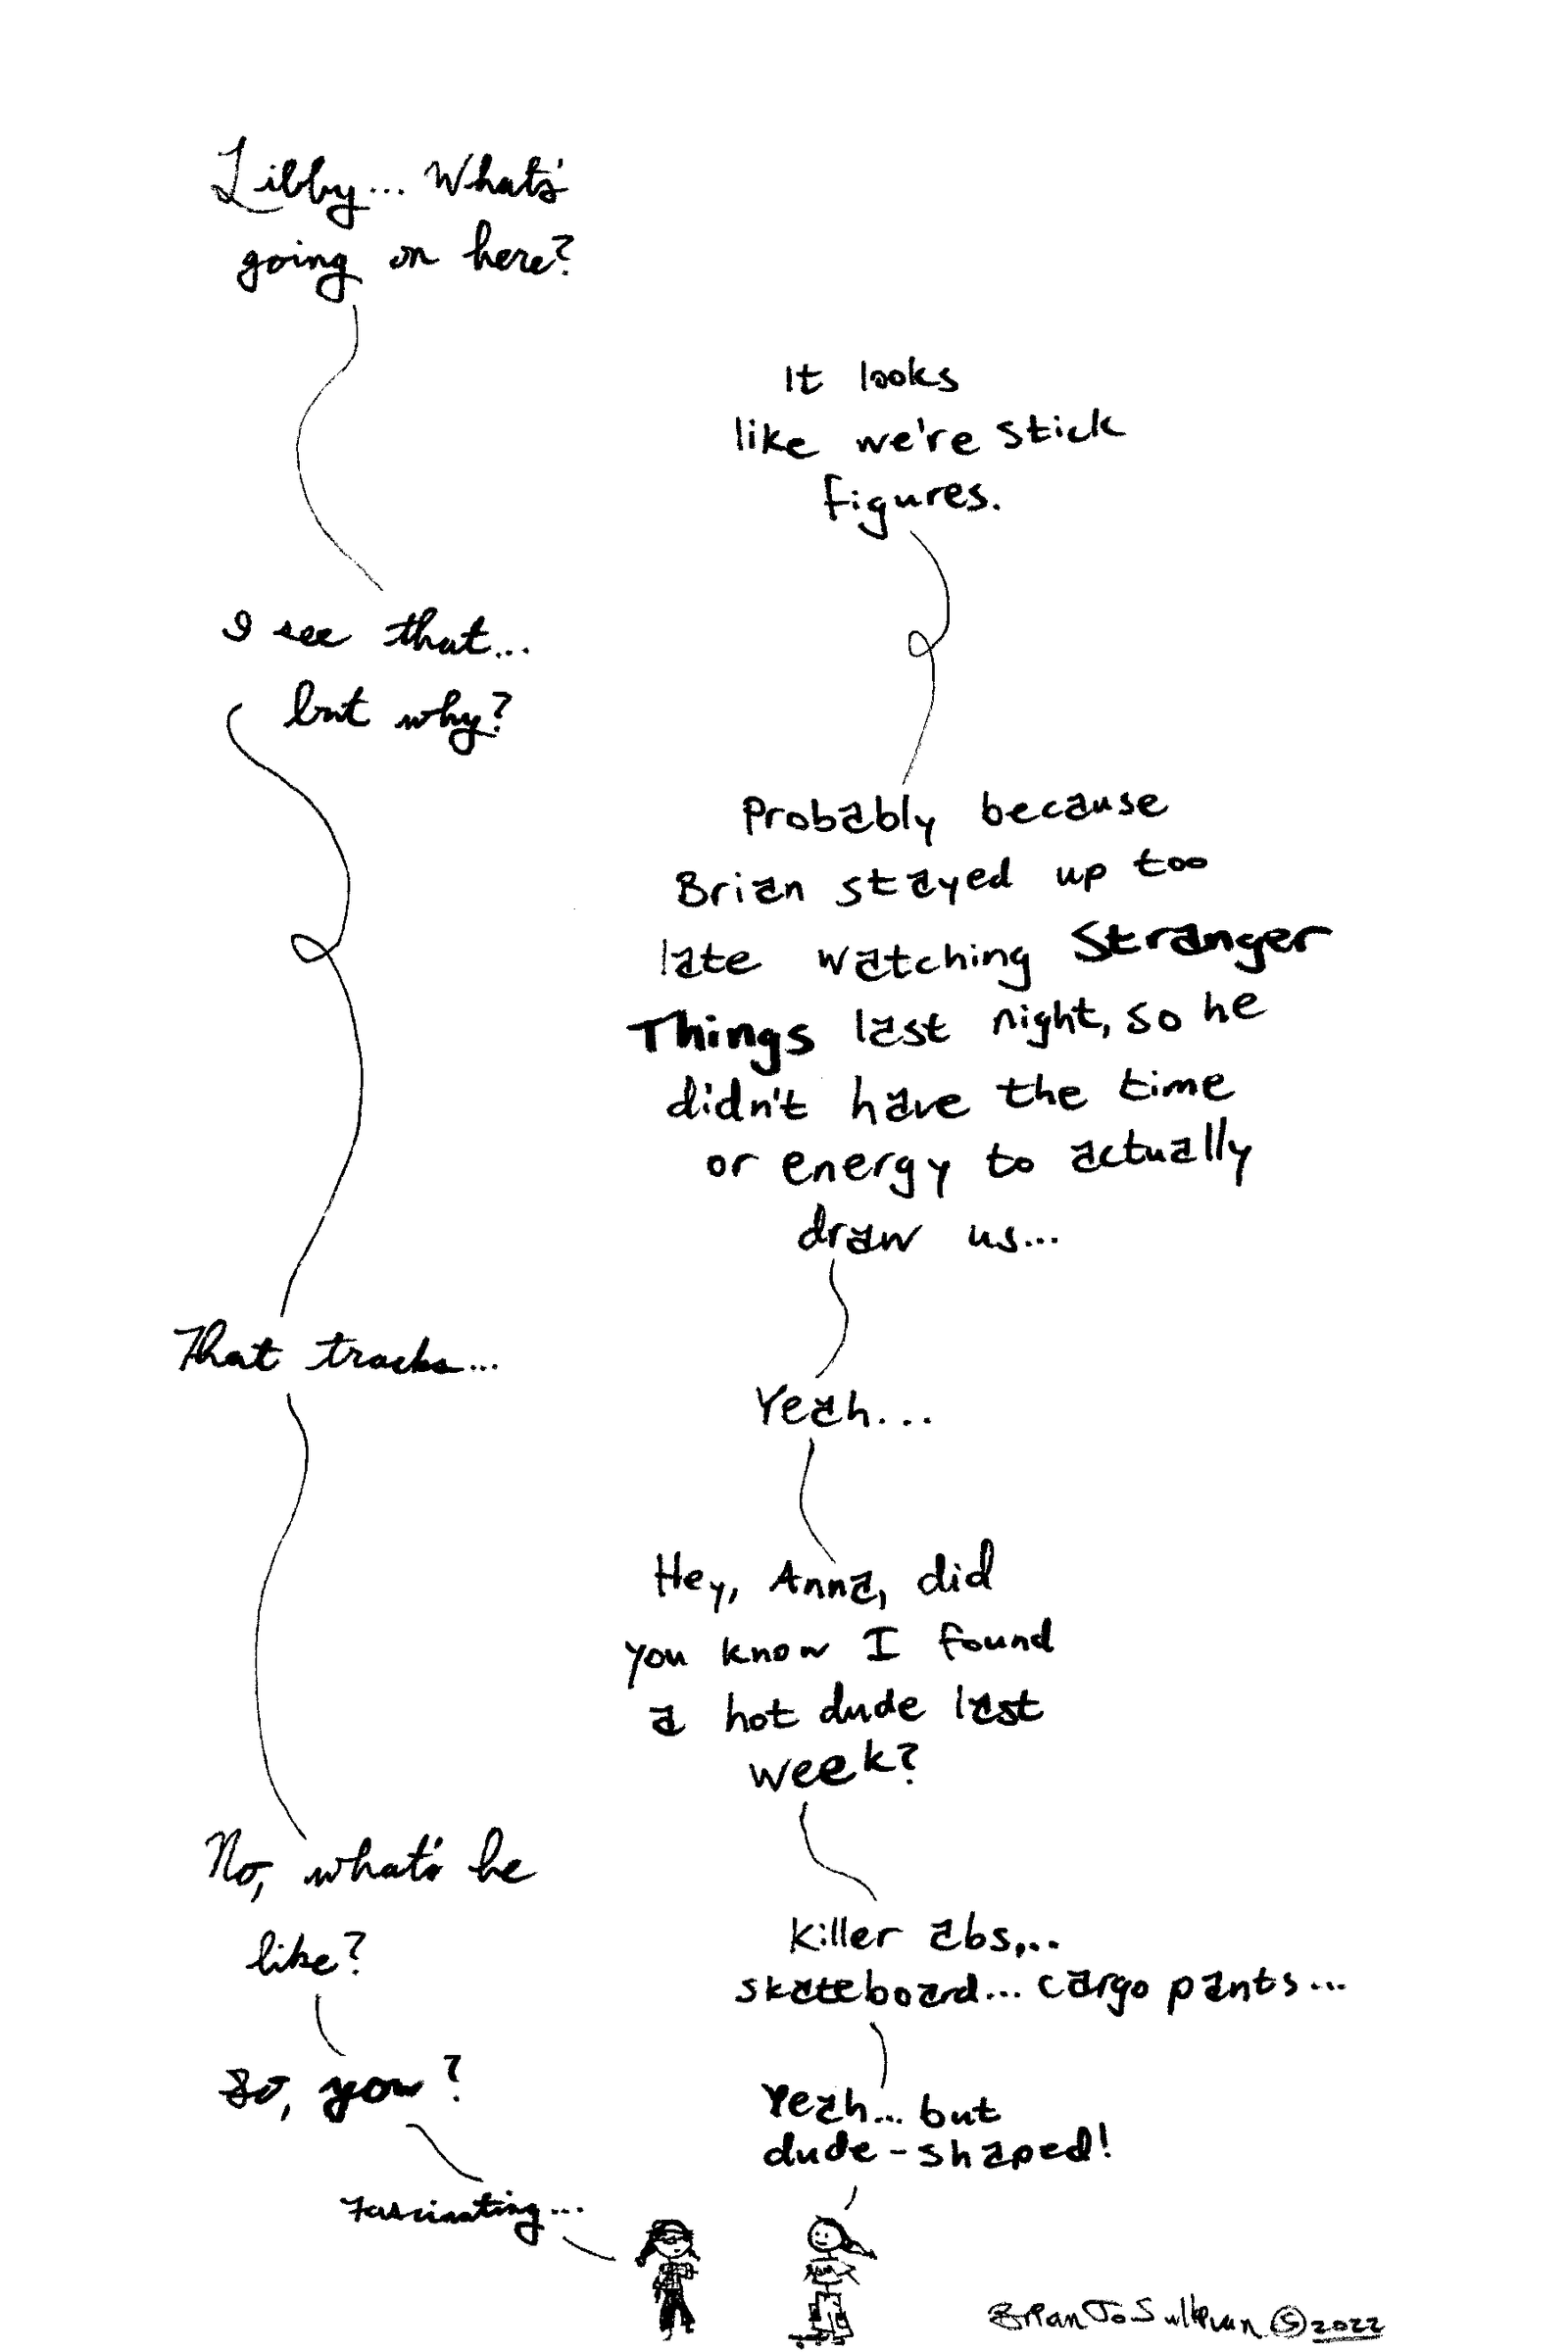 Libby... What's
going on here?
It looks
like we're stick
figures.
I see that...
but why?
Probably because
Brian stayed up too
late watching Stranger
Things last night, so he
didn't have the time
or energy to actually
draw us...
That tracks...
Yeah...
Hey, Anna, did
you know I found
a hot dude last
week?
No, what's he
like?
Killer abs,...
skateboard... cargo pants...
So, you?
Yeah... but
dude-shaped!
Fascinating...
Brian JoSullivan © 2022